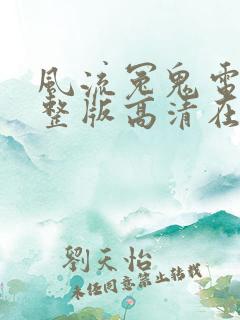 風流冤鬼雷
整版高清在
劉天怡
未经同意禁止转载